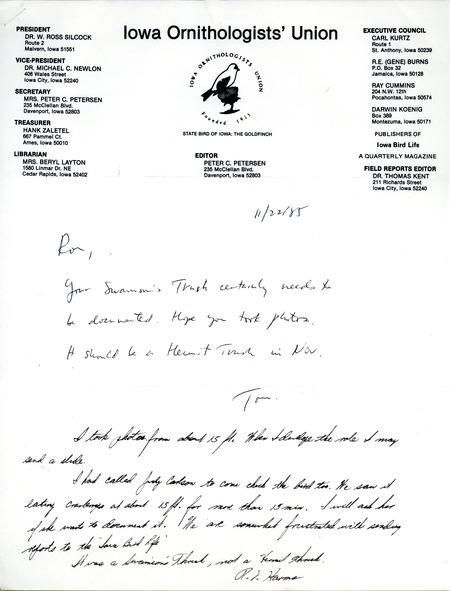 Iowa Ornithologists' Union
PRESIDENT
DR. W. ROSS SILCOCK
Route 2
Malvern, Iowa 51551
VICE-PRESIDENT
DR. MICHAEL C. NEWLON
408 Wales Street
Iowa City, Iowa 52240
SECRETARY
MRS. PETER C. PETERSEN
235 McClellan Blvd.
Davenport, Iowa 52803
TREASURER
HANK ZALETEL
667 Pammel Ct.
Ames, Iowa 50010
LIBRARIAN
MRS. BERYL LAYTON
1580 Linmar Dr. NE
Cedar Rapids, Iowa 52402
IOWA ORNITHOLOGISTS UNION
Founded 1923
STATE BIRD OF IOWA: THE GOLDFINCH
EDITOR
PETER C. PETERSEN
235 McClellan Blvd.
Davenport, Iowa 52803
EXECUTIVE COUNCIL
CARL KURTZ
Route 1
St. Anthony, Iowa 50239
R.E. (GENE) BURNS
P.O. Box 32
Jamaica, Iowa 50128
RAY CUMMINS
204 N.W. 12th
Pocahontas, Iowa 50574
DARWIN KOENIG
Box 389
Montezuma, Iowa 50171
PUBLISHERS OF
Iowa Bird Life
A QUARTERLY MAGAZINE
FIELD REPORTS EDITOR
DR. THOMAS KENT
211 Richards Street
Iowa City, Iowa 52240
11/22/85
Ron,
Your Swainson's Trush certainly needs to
be documented. Hope you took photos.
It should be a Hermit Trush in Nov.
Tom.
I took photos from about 15 ft. When I develope the role I may
send a slide.
I had called Judy Carlson to come check the bird too. We saw it
eating cranberries at about 15 ft. for more than 15 min. I will ask her
if she wants to document it. We are somewhat frustrated with sending
reports to the "Iowa Bird Life"
It was a Swainson's Thrush, not a Hermit Thrush.
R. L. Harms